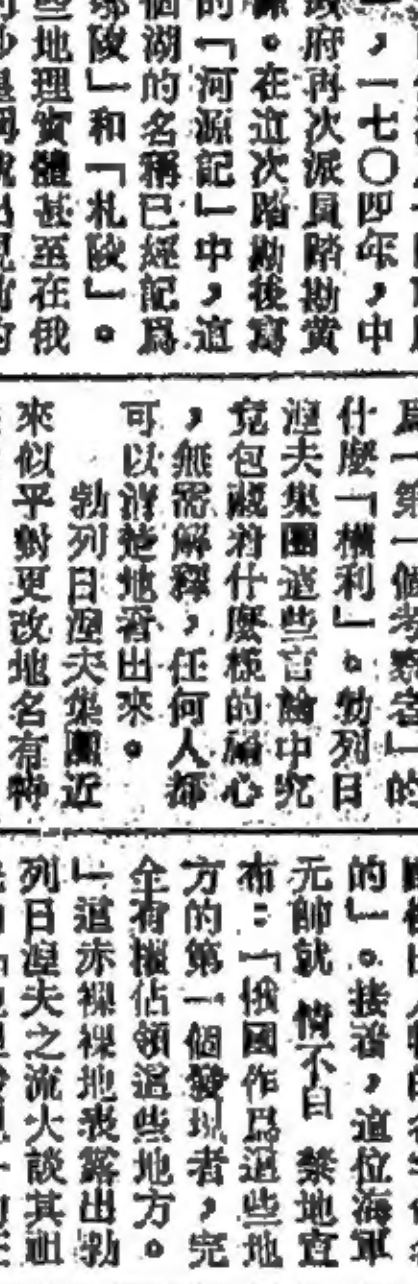 ，一七〇四年，中
政府再次派員踏勘黃
源。在這次踏勘後寫
的「河源記」中，這
個湖的名稱已經記爲
鄂陵」和「札陵」。
些地理實體甚至在俄
爲「第一個考察者」的
什麼「權利」。勃列日
涅夫集團這些言論中究
竟包藏着什麼樣的禍心
，無需解釋，任何人都
可以清楚地看出來。
勃列日涅夫集團近
來似乎對更改地名有特
的」。接着，這位海軍
元帥就情不自禁地宣
布：「俄國作爲這些地
方的第一個發現者，完
全有權佔領這些地方。
」這赤裸裸地表露出勃
列日涅夫之流大談其祖